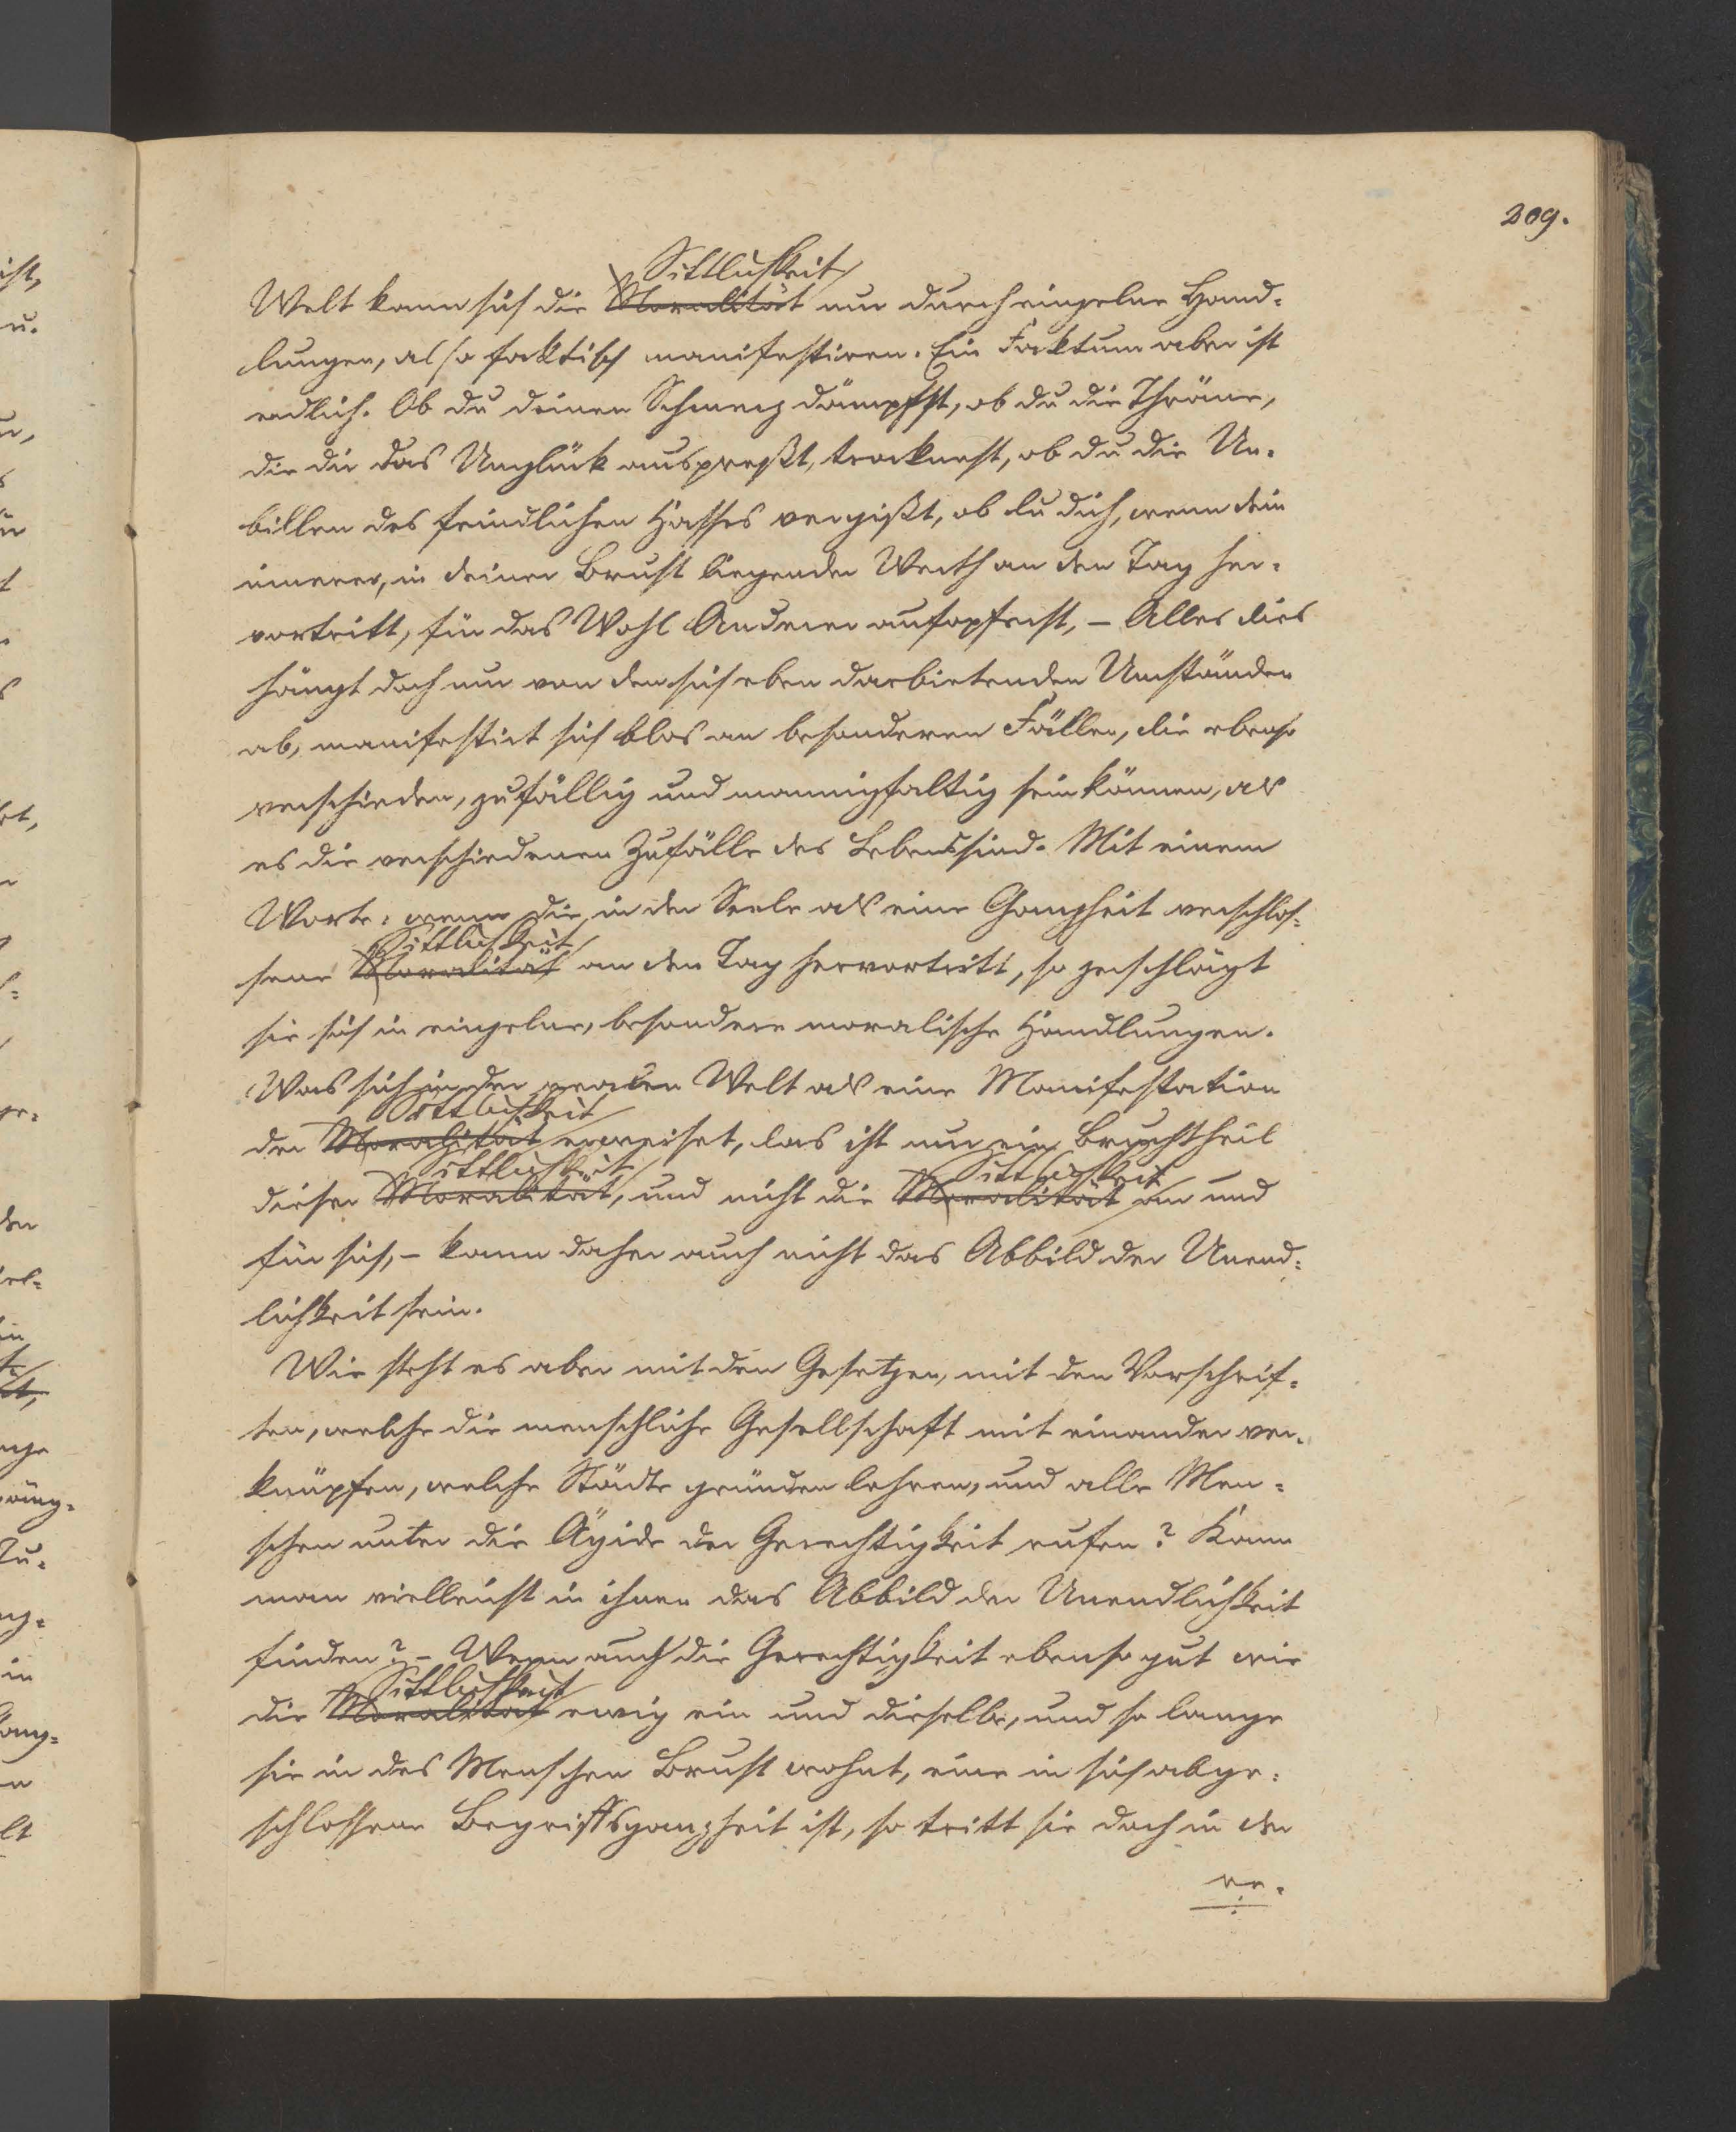 209.
Sittlichkeit
Welt kann sich die Moralität nur durch einzelne Hand-
lungen, also faktisch manifestiren. Ein Faktum aber ist
endlich. Ob du deinen Schmerz dämpfst, ob du die Thräne,
die dir das Unglück auspreßt, trocknest, ob du die Un-
billen des feindlichen Hasses vergißt, ob du dich, wenn dein
innerer, in deiner Brust liegender Werth an den Tag her-
vortritt, für das Wohl Anderer aufopferst, – Alles dies
hängt doch nur von den sich eben darbietenden Umständen
ab, manifestirt sich blos an besonderen Fällen, die ebenso
verschieden, zufällig und mannigfaltig sein können, als
es die verschiedenen Zufälle des Lebens sind. Mit einem
Worte: wenn die in der Seele als eine Ganzheit verschlos-
Sittlichkeit
sene Moralität an den Tag hervortritt, so zerschlägt
sie sich in einzelne, besondere moralische Handlungen.
Was sich in der realen Welt als eine Manifestation
Sittlichkeit
der Moralität erweiset, das ist nur ein Bruchtheil
Sittlichkeit Sittlichkeit
dieser Moralität, und nicht die Moralität an und
für sich, – kann daher auch nicht das Abbild der Unend-
lichkeit sein.
Wie steht es aber mit den Gesetzen, mit den Vorschrif-
ten, welche die menschliche Gesellschaft mit einander ver-
knüpfen, welche Städte gründen lehren, und alle Men-
schen unter die Ägide der Gerechtigkeit rufen? Kann
man vielleicht in ihnen das Abbild der Unendlichkeit
finden? – Wenn auch die Gerechtigkeit ebenso gut wie
Sittlichkeit
die Moralität ewig ein und dieselbe, und so lange
sie in des Menschen Brust wohnt, eine in sich abge-
schlossene Begriffsganzheit ist, so tritt sie doch in der
re-